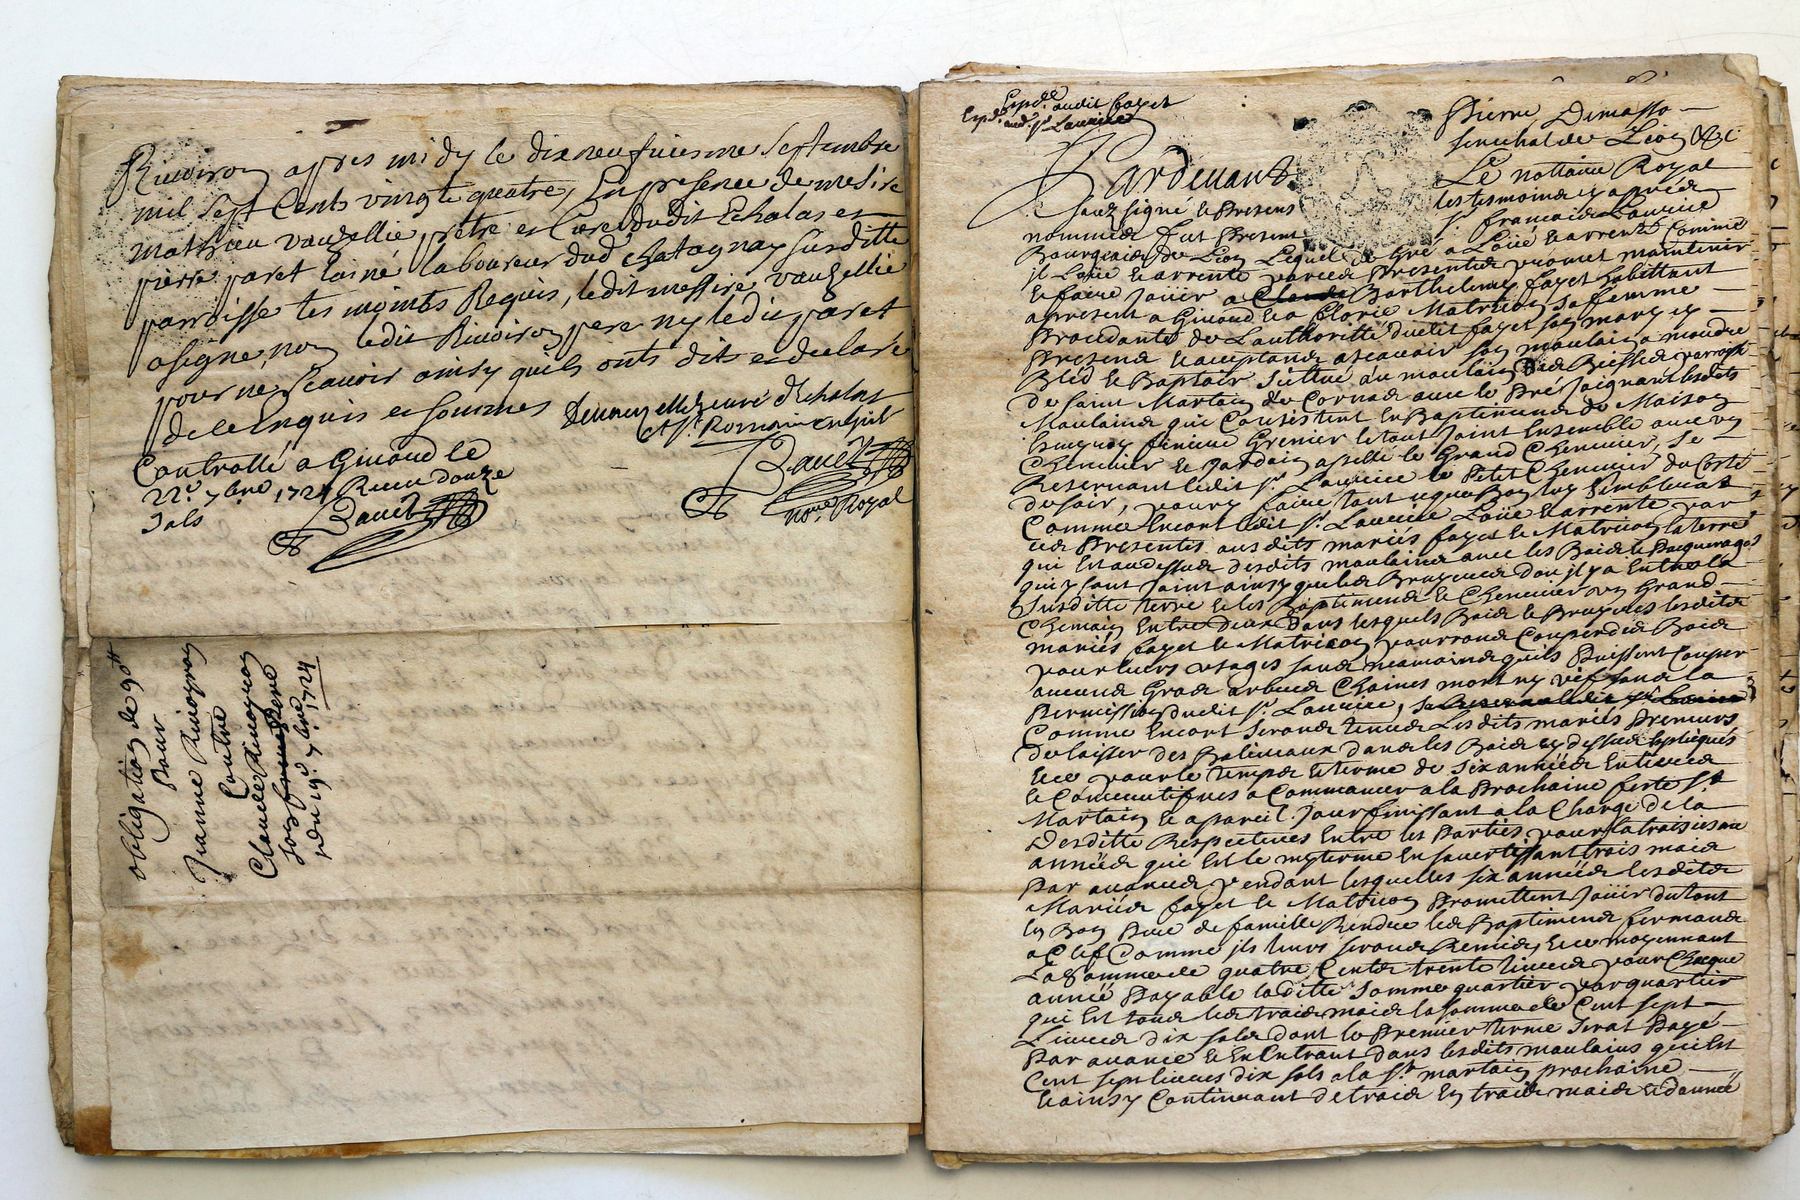 Rivoiron apres midy le dixneufviesme septembre
mil sept cents vingte quatre, En presence de messire
mathieu vauzellie, prêtre et Curé dudit Echalas et
pierre paret lainé laboureur dud chatagnay susditte
parroisse tesmoints Requis, ledit messire vauzellie
a signé, non ledit Rivoiron pere ny ledit paret
pour ne scavoir ainsy quils onts dit et declaré
de ce Enquis et sommes
Devauzelle curé dEchalas
et St. Romain en Jarest
Controllé a Givord le
22e 7bre 1724 Receu douze
sols
Bauet
Bauet
nore Royal
obligation de 90tt
Pour
Jeanne Rivoyron
Contre
Claude Rivoyron
son pere
du 19e 7bre 1724
Expdée audit fayet
Expd. aud. Sr Lauriere
Pierre Demasso
senechal de Lion &c
Pardevant
Le nottaire Royal
souzsigné & Presens
les tesmoins cy apres
nommes fut Present
sr. francois Lauriere
Bourgeois de Lion Lequel de Gré a Loüé & arrenté Comme
jl Loüe & arrente par ces Presentes promet maintenir
& faire Joüir a Barthelemy fayet habittant
apresent a Givord & a Clorie Matricon sa femme
Procedante de Lauthoritté dudit fayet son mary cy
Presens & acceptans ascavoir son moulain a moudre
Bled & Baptoir Sittué au moulain de Bissieu parroisse
de saint Martain de Cornas avec le Pré Joignant lesdits
Moulains qui Consistent En Baptiments de Maison
Escurie feniere Grenier le tout Joint Ensemble avec un
Chenevier & Jardain apellé le Grand Chenevier, se
Reservant ledit sr. Lauriere le Petit Chenevier du Costé
de soir, pour y faire tout ce que Bon luy semblera
Comme Encore ledit sr. Lauriere Loüe & arrente par
ces Presentes ausdits mariés fayet & Matricon la terre
qui Est audessus desdits moulains avec les Bois & Pasquerages
qui y sont Joint ainsy que les Bruyeres dou jl y a Entre la
susditte terre & les Baptiments & Chenevier un Grand
Chemain Entre deux dans lesquels Bois & Bruyeres lesdits
mariés fayet & Matricon pourront Couper des Bois
pour leurs usages sans neamoins quils Puissent Couper
aucuns Gros arbres Chaines mort ny vif sans la
Permission dudit sr. Lauriere,
Comme Encore seront tenus Lesdits mariés Preneurs
de laisser des Baliveaux dans les Bois cy dessus expliqués
& ce pour le temps & terme de six années Entieres
& Consecutifves a Commancer a la Prochaine feste St.
Martain & a pareil Jour finissant a la Charge de la
desditte Respective Entre les Parties pour la troisiesme
année qui Est le my terme En s'avertissant trois mois
Par avance, pendant lesquelles six années lesdits
Mariés fayet & Matricon Promettent Joüir du tout
En Bon Pere de famille Rendre les Baptiments fermans
a Clef Comme jls leurs seront Remis, & ce moyennant
La somme de quatre Cents trente livres pour Chaque
année Payable laditte somme quartier par quartier
qui Est tous les trois mois la somme de Cent sept
Livres dix sols dont le Premier terme serat Payé
Par avance & En Entrant dans lesdits moulains qui Est
Cent sept livres dix sols a la St. martain prochaine
& ainsy Continuant de trois En trois mois & d'année